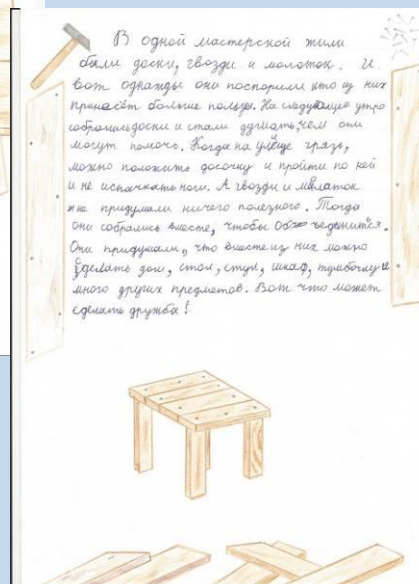 В одной мастерской жили
были доски, гвозди и молоток. И
вот однажды они поспорили кто из них
принесёт больше пользы. На следующее утро
собрались доски и стали думать, чем они
могут помочь. Когда на улице грязь,
можно положить досочку и пройти по ней
и не испачкать ноги. А гвозди и молоток
не придумали ничего полезного. Тогда
они собрались вместе, чтобы объединится.
Они придумали, что вместе из них можно
сделать дом, стол, стул, шкаф, тумбочку и
много других предметов. Вот что может
сделать дружба!